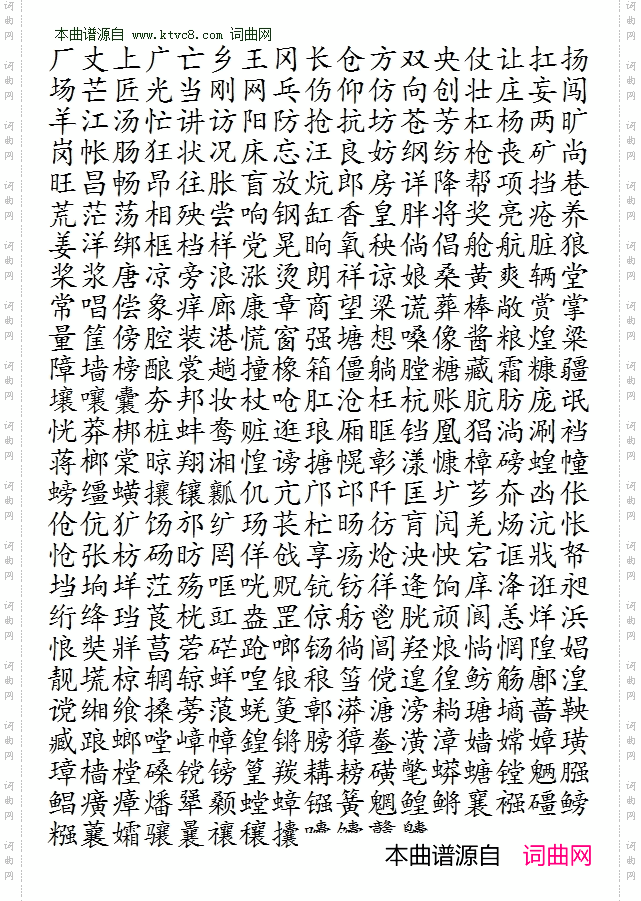 本曲谱源自 www.ktvc8.com 词曲网
厂丈上广亡乡王冈长仓方双央仗让扛扬
场芒匠光当刚网乓伤仰仿向创壮庄妄闯
羊江汤忙讲访阳防抢抗坊苍芳杠杨两旷
岗帐肠狂状况床忘汪良妨纲纺枪丧矿尚
旺昌畅昂往胀盲放炕郎房详降帮项挡巷
荒茫荡相殃尝响钢缸香皇胖将奖亮疮养
姜洋绑框档样党晃晌氧秧倘倡舱航脏狼
桨浆唐凉旁浪涨烫朗祥谅娘桑黄爽辆堂
常唱偿象痒廊康章商望梁谎葬棒敞赏掌
量筐傍腔装港慌窗强塘想嗓像酱粮煌粱
障墙榜酿裳趟撞橡箱僵躺膛糖藏霜糠疆
壤嚷囊夯邦妆杖呛肛沧枉杭账肮肪庞氓
恍莽梆桩蚌鸯赃逛琅厢眶铛凰猖淌涮裆
蒋榔棠晾翔湘惶谤搪幌彰漾慷樟磅蝗幢
螃缰蟥攘镶瓤仉亢邝邙阡匡圹芗夼凼伥
伧伉犷饧邡纩玚苌杧旸彷肓闶羌炀沆怅
怆张枋砀昉罔佯戗享疡炝泱怏宕诓戕帑
垱垧垟茳殇哐咣贶钪钫徉逄饷庠洚诳昶
绗绛珰莨桄豇盎罡倞舫鬯胱颃阆恙烊浜
悢奘牂菖菪硭跄啷铴徜阊羟烺惝惘隍娼
靓塃椋辋辌蛘喤锒稂筜傥遑徨鲂觞鄌湟
谠缃飨搡蒡蒗蜣筻鄣漭溏滂耥瑭墒蔷鞅
臧踉螂嘡嶂幛锽锵膀獐鲞潢漳嫱嫦嫜璜
璋樯樘磉镋镑篁羰耩耪磺氅蟒螗镗魉膙
鲳癀瘴燔犟颡螳蟑镪簧魍鳇鳉襄襁礓鳑
糨蘘孀骧曩禳穰攮
本曲谱源自 词曲网